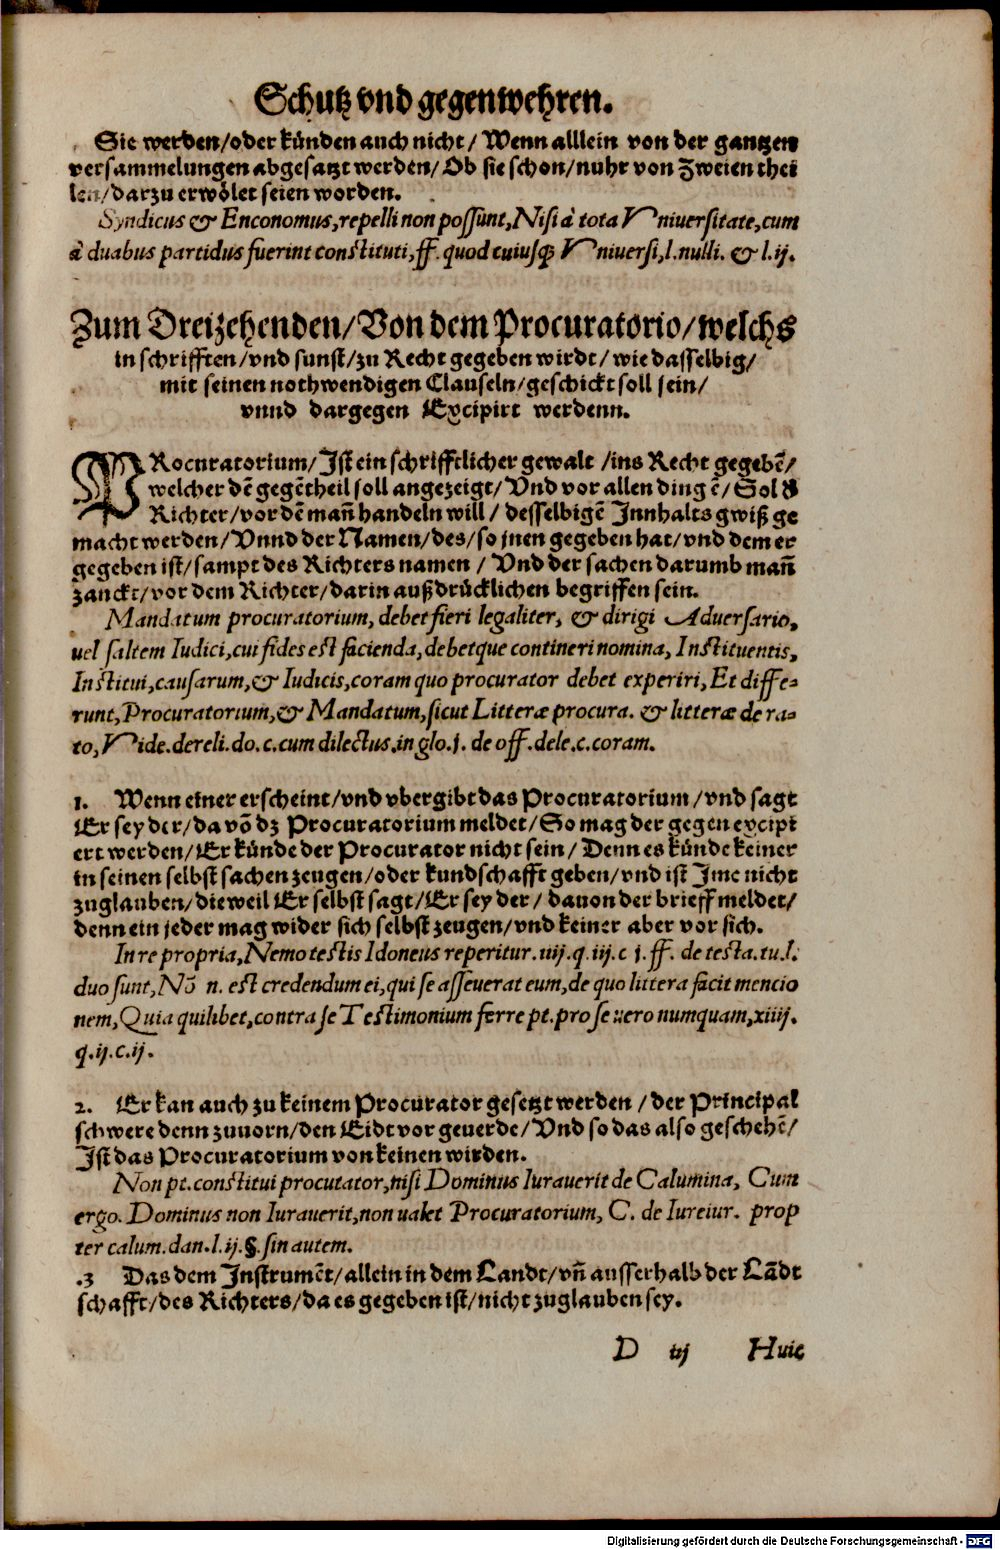 Schutz vnd gegenwehren.
Sie werden/oder künden auch nicht/ Wenn alllein von der gantzen
versammelungen abgesatzt werden/ Ob sie schon/nuhr von Zweien thei
len/darzu erwölet seien worden.
Syndicus & Enconomus,repelli non possunt,Nisi à tota Vniuersitate,cum
à duabus partidus fuerint constituti,ff.quod cuiusq; Vniuersi,l.nulli. & l.ij.
Zum Dreizehenden/Von dem Procuratorio/welchs
in schrifften/vnd sunst/zu Recht gegeben wirdt/ wie dasselbig/
mit seinen nothwendigen Clauseln/geschickt soll sein/
vnnd dargegen Excipirt werdenn.
PRocuratorium/ Jst ein schrifftlicher gewalt /ins Recht gegebē/
welcher dē gegētheil soll angezeigt/ Vnd vor allen dingē/ Sol d̕
Richter/vor dē mañ handeln will / desselbigē Jnnhalts gwiß ge
macht werden/ Vnnd der Namen/des/so jnen gegeben hat/vnd dem er
gegeben ist/sampt des Richters namen / Vnd der sachen darumb mañ
zanckt/vor dem Richter/darin außdrücklichen begriffen sein.
Mandatum procuratorium, debet fieri legaliter, & dirigi Aduersario,
uel saltem Iudici,cui fides est facienda,debetque contineri nomina, Instituentis,
Institui,causarum,& Iudicis,coram quo procurator debet experiri, Et diffe-
runt,Procuratorium,& Mandatum,sicut Litteræ procura. & litteræ de ra-
to,Vide.dereli.do.c.cum dilectus.in glo.j. de off.dele.c.coram.
1. Wenn einer erscheint/vnd vbergibt das Procuratorium /vnd sagt
Er sey der/da vō dz Procuratorium meldet/ So mag der gegen excipi
ert werden/ Er künde der Procurator nicht sein/ Denn es künde keiner
in seinen selbst sachen zeugen/oder kundschafft geben/vnd ist Jme nicht
zuglauben/dieweil Er selbst sagt/Er sey der/ dauon der brieff meldet/
denn ein jeder mag wider sich selbst zeugen/vnd keiner aber vor sich.
In re propria,Nemo testis Idoneus reperitur.iiij.q.iij.c j.ff. de testa.tu.l.
duo sunt,Nō n. est credendum ei,qui se asseuerat eum,de quo littera facit mencio
nem,Quia quilibet,contra se Testimonium ferre pt.pro se uero numquam,xiiij.
q.ij.c.ij.
2. Er kan auch zu keinem Procurator gesetzt werden /der Principal
schwere denn zuuorn/den Eidt vor geuerde/ Vnd so das also geschehē/
Jst das Procuratorium von keinen wirden.
Non pt.constitui procutator,nisi Dominus Iurauerit de Calumina, Cum
ergo.Dominus non Iurauerit,non ualet Procuratorium, C. de Iureiur. prop
ter calum.dan.l.ij.§.sin autem.
.3 Das dem Jnstrumēt/allein in dem Landt/vñ ausserhalb der Lādt
schafft/des Richters/da es gegeben ist/nicht zuglauben sey.
D iij Huic
Digitalisierung gefördert durch die Deutsche Forschungsgemeinschaft - DFG